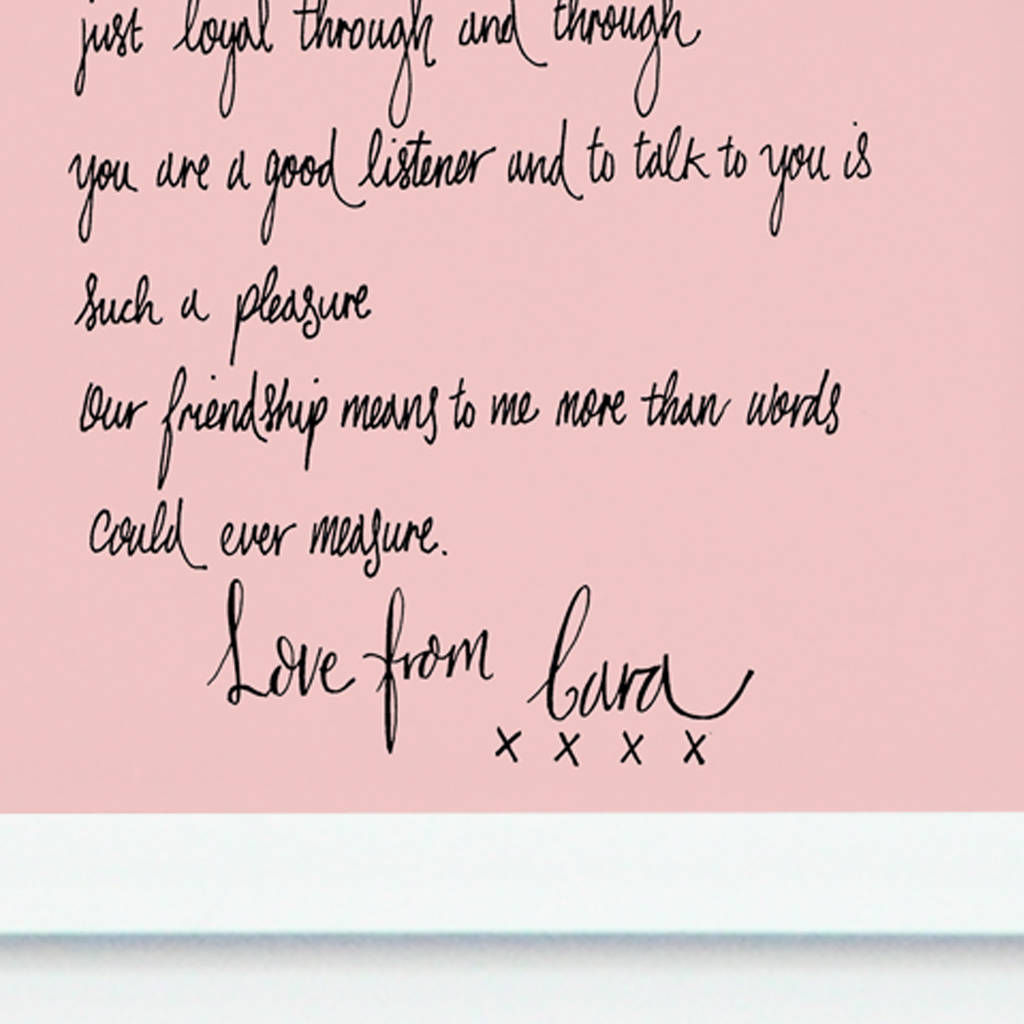 just loyal through and through
you are a good listener and to talk to you is
such a pleasure
Our friendship means to me more than words
could ever measure.
Love from Cara
x x x x